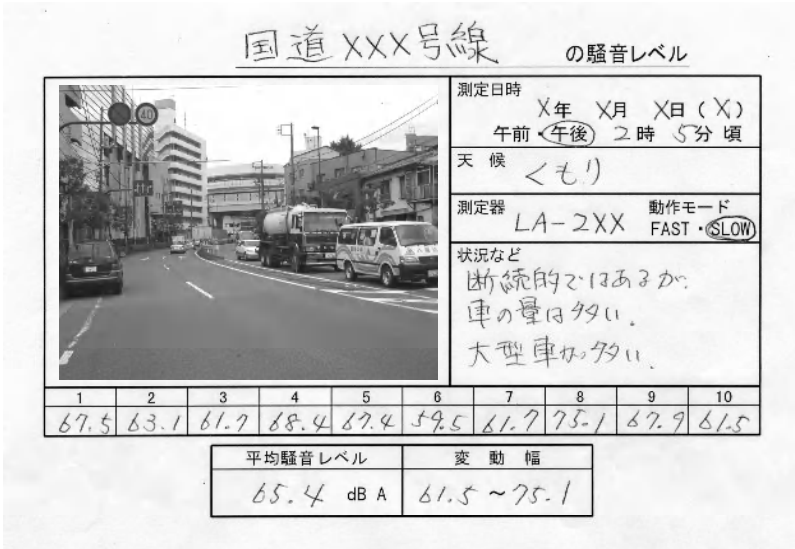 国道XXX号線 の騒音レベル
40
測定日時
X年 X月 X日(X)
午前・午後 2時 5分 頃
天 候 くもり
測定器 LA-2XX
動作モード
FAST・SLOW
状況など
断続的ではあるが、
車の量は多い。
大型車が多い。
1 2 3 4 5 6 7 8 9 10
67.5 63.1 61.7 68.4 67.4 59.5 61.7 75.1 67.9 61.5
平均騒音レベル 変動幅
65.4 dB A 61.5~75.1